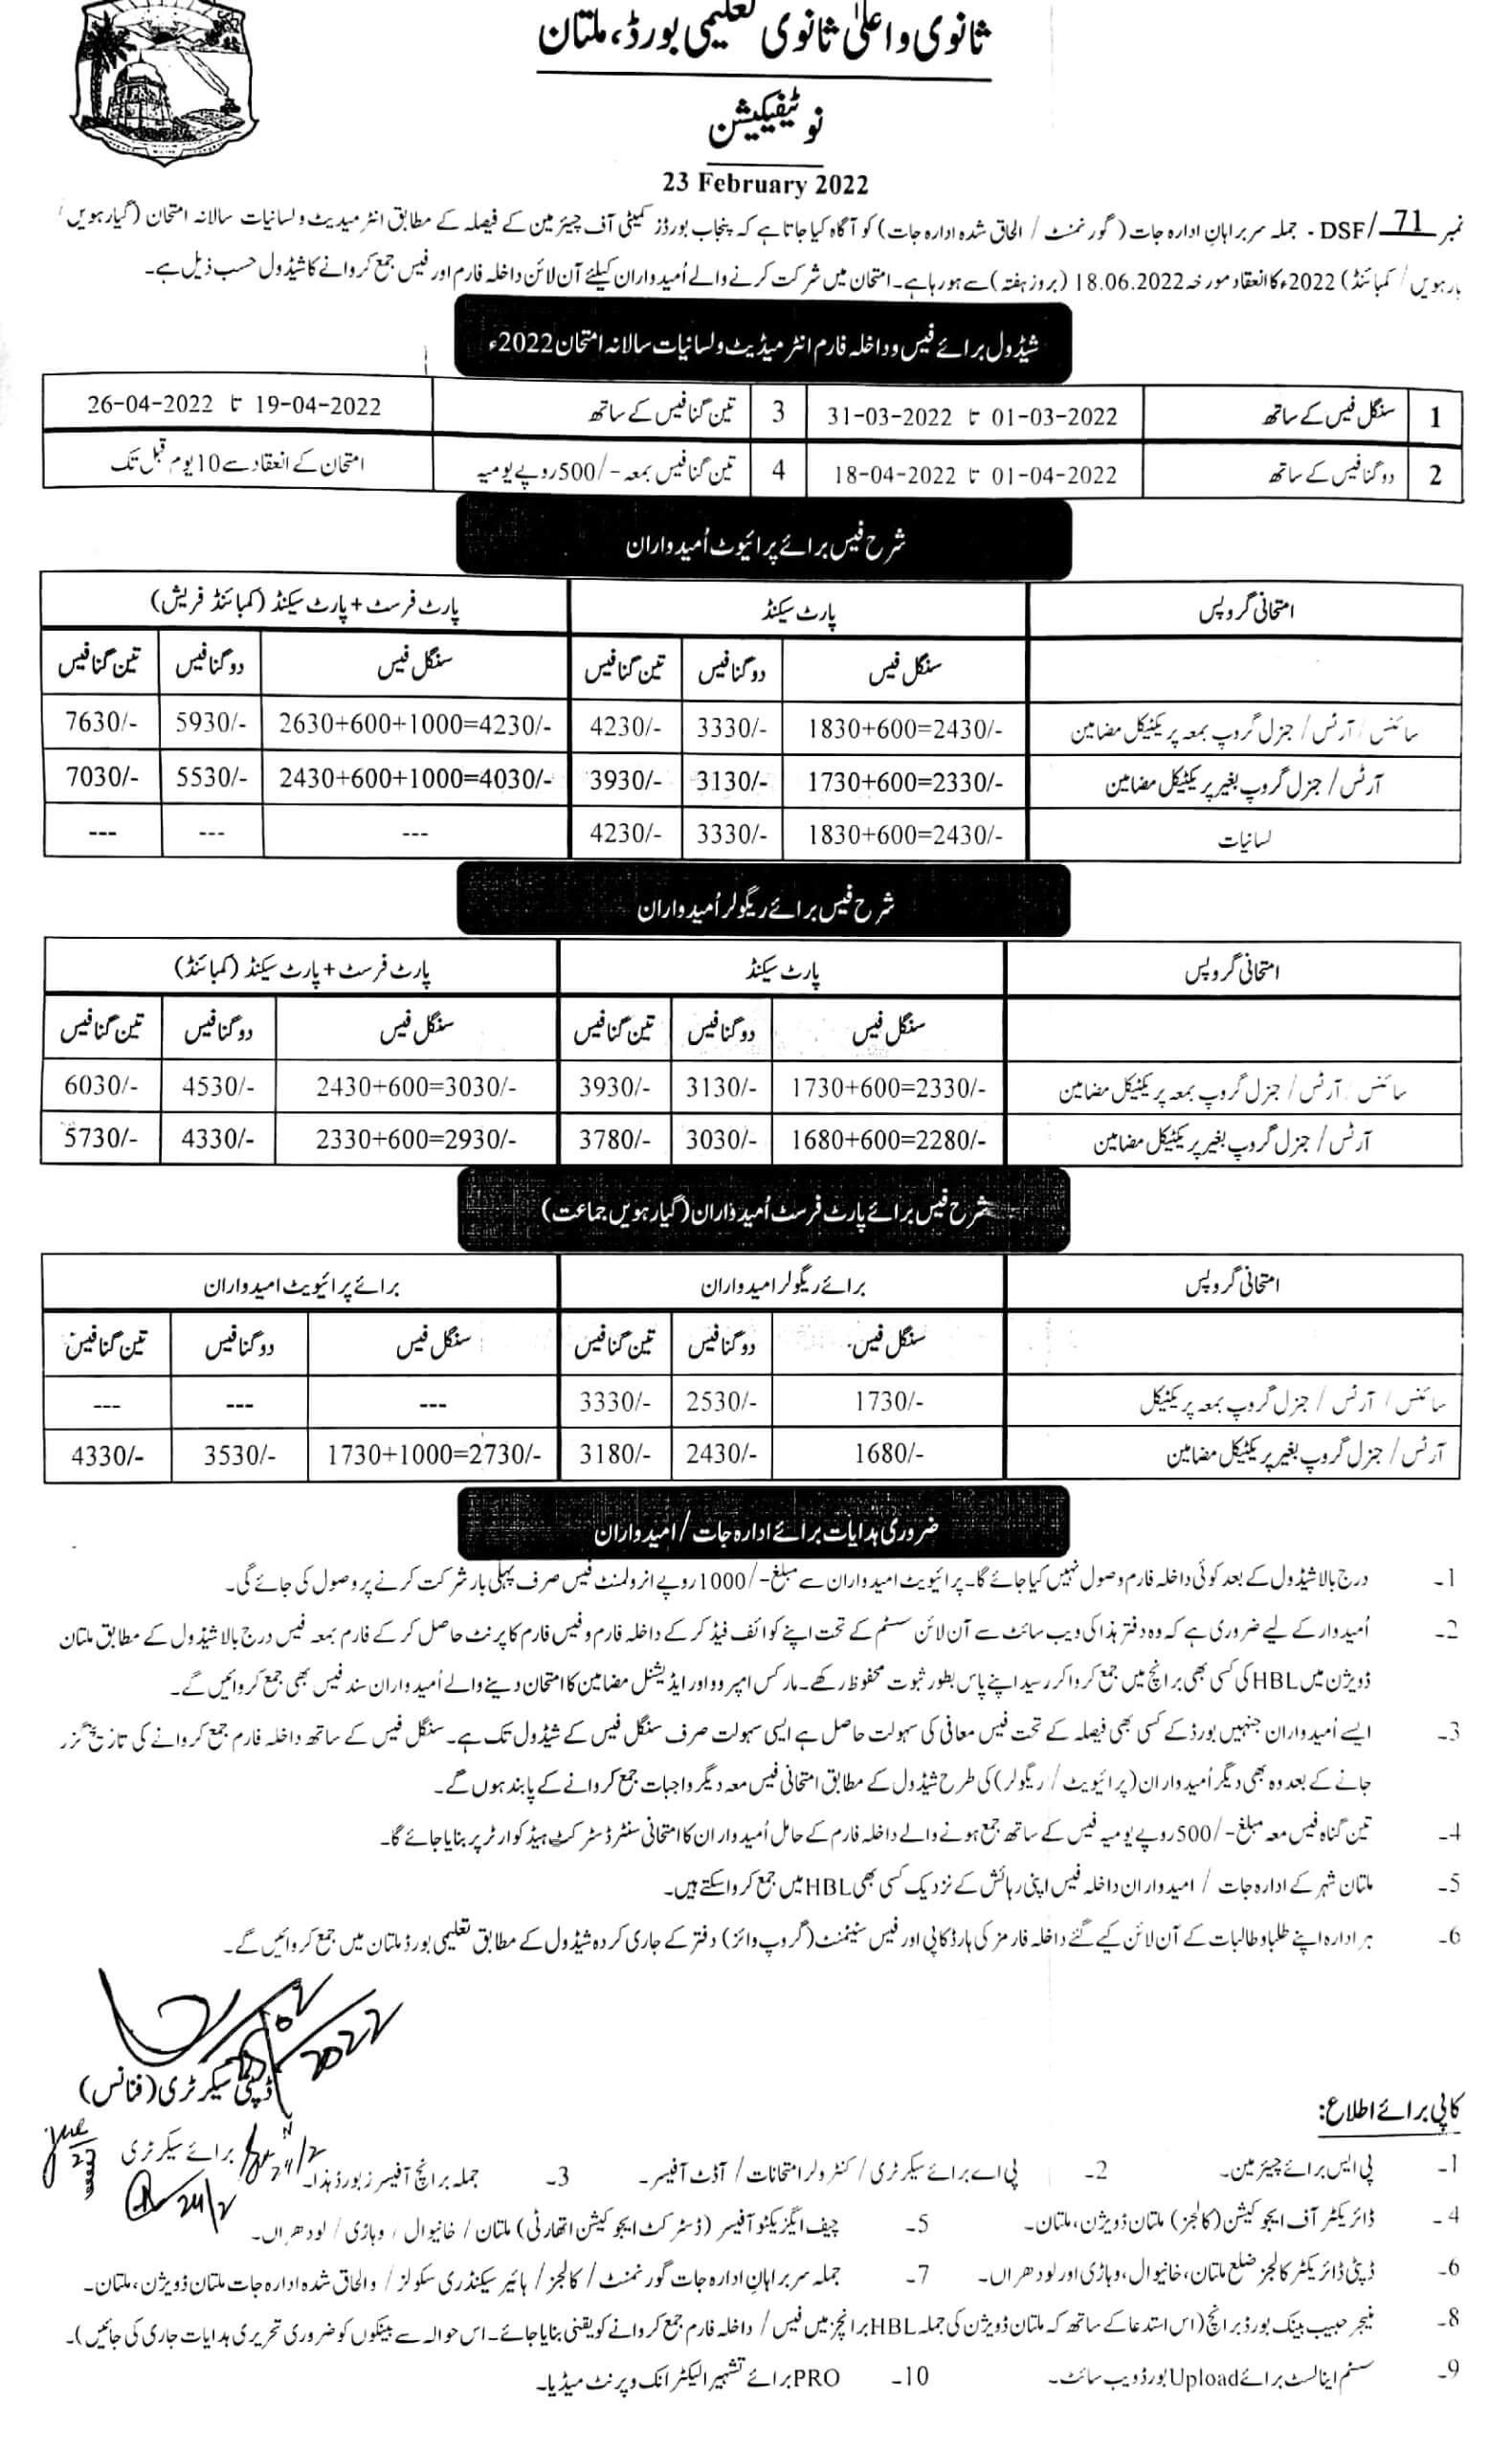 ثانوی و اعلیٰ ثانوی تعلیمی بورڈ، ملتان
نوٹیفیکیشن
23 February 2022
نمبر 71/DSF - جملہ سربراہان ادارہ جات (گورنمنٹ / الحاق شدہ ادارہ جات) کو آگاہ کیا جاتا ہے کہ پنجاب بورڈز کمیٹی آف چیئرمین کے فیصلہ کے مطابق انٹرمیڈیٹ و لسانیات سالانہ امتحان (گیارہویں /
بارہویں / کمبائنڈ) 2022ء کا انعقاد مورخہ 18.06.2022 (بروز ہفتہ) سے ہو رہا ہے۔ امتحان میں شرکت کرنے والے اُمیدواران کیلئے آن لائن داخلہ فارم اور فیس جمع کروانے کا شیڈول حسب ذیل ہے۔
شیڈول برائے فیس و داخلہ فارم انٹرمیڈیٹ و لسانیات سالانہ امتحان 2022ء
1 سنگل فیس کے ساتھ 01-03-2022 تا 31-03-2022 3 تین گنا فیس کے ساتھ 19-04-2022 تا 26-04-2022
2 دو گنا فیس کے ساتھ 01-04-2022 تا 18-04-2022 4 تین گنا فیس بمعہ -/500 روپے یومیہ امتحان کے انعقاد سے 10 یوم قبل تک
شرح فیس برائے پرائیوٹ اُمیدواران
امتحانی گروپس پارٹ سیکنڈ پارٹ فرسٹ + پارٹ سیکنڈ (کمبائنڈ فریش)
سنگل فیس دو گنا فیس تین گنا فیس سنگل فیس دو گنا فیس تین گنا فیس
سائنس / آرٹس / جنرل گروپ بمعہ پریکٹیکل مضامین 1830+600=2430/- 3330/- 4230/- 2630+600+1000=4230/- 5930/- 7630/-
آرٹس / جنرل گروپ بغیر پریکٹیکل مضامین 1730+600=2330/- 3130/- 3930/- 2430+600+1000=4030/- 5530/- 7030/-
لسانیات 1830+600=2430/- 3330/- 4230/- --- --- ---
شرح فیس برائے ریگولر اُمیدواران
امتحانی گروپس پارٹ سیکنڈ پارٹ فرسٹ + پارٹ سیکنڈ (کمبائنڈ)
سنگل فیس دو گنا فیس تین گنا فیس سنگل فیس دو گنا فیس تین گنا فیس
سائنس / آرٹس / جنرل گروپ بمعہ پریکٹیکل مضامین 1730+600=2330/- 3130/- 3930/- 2430+600=3030/- 4530/- 6030/-
آرٹس / جنرل گروپ بغیر پریکٹیکل مضامین 1680+600=2280/- 3030/- 3780/- 2330+600=2930/- 4330/- 5730/-
شرح فیس برائے پارٹ فرسٹ اُمیدواران (گیارہویں جماعت)
امتحانی گروپس برائے ریگولر امیدواران برائے پرائیویٹ امیدواران
سنگل فیس دو گنا فیس تین گنا فیس سنگل فیس دو گنا فیس تین گنا فیس
سائنس / آرٹس / جنرل گروپ بمعہ پریکٹیکل 1730/- 2530/- 3330/- --- --- ---
آرٹس / جنرل گروپ بغیر پریکٹیکل مضامین 1680/- 2430/- 3180/- 1730+1000=2730/- 3530/- 4330/-
ضروری ہدایات برائے ادارہ جات / امیدواران
1- درج بالا شیڈول کے بعد کوئی داخلہ فارم وصول نہیں کیا جائے گا۔ پرائیویٹ امیدواران سے مبلغ -/1000 روپے انرولمنٹ فیس صرف پہلی بار شرکت کرنے پر وصول کی جائے گی۔
2- اُمیدوار کے لیے ضروری ہے کہ وہ دفتر ہذا کی ویب سائٹ سے آن لائن سسٹم کے تحت اپنے کوائف فیڈ کر کے داخلہ فارم و فیس فارم کا پرنٹ حاصل کر کے فارم بمعہ فیس درج بالا شیڈول کے مطابق ملتان
ڈویژن میں HBL کی کسی بھی برانچ میں جمع کروا کر رسید اپنے پاس بطور ثبوت محفوظ رکھے۔ مارکس امپروو اور ایڈیشنل مضامین کا امتحان دینے والے اُمیدواران سند فیس بھی جمع کروائیں گے۔
3- ایسے اُمیدواران جنہیں بورڈ کے کسی بھی فیصلہ کے تحت فیس معافی کی سہولت حاصل ہے ایسی سہولت صرف سنگل فیس کے شیڈول تک ہے۔ سنگل فیس کے ساتھ داخلہ فارم جمع کروانے کی تاریخ گزر
جانے کے بعد وہ بھی دیگر اُمیدواران (پرائیویٹ / ریگولر) کی طرح شیڈول کے مطابق امتحانی فیس معہ دیگر واجبات جمع کروانے کے پابند ہوں گے۔
4- تین گناہ فیس معہ مبلغ -/500 روپے یومیہ فیس کے ساتھ جمع ہونے والے داخلہ فارم کے حامل اُمیدواران کا امتحانی سنٹر ڈسٹرکٹ ہیڈ کوارٹر پر بنایا جائے گا۔
5- ملتان شہر کے ادارہ جات / امیدواران داخلہ فیس اپنی رہائش کے نزدیک کسی بھی HBL میں جمع کروا سکتے ہیں۔
6- ہر ادارہ اپنے طلبا و طالبات کے آن لائن کیے گئے داخلہ فارمز کی ہارڈ کاپی اور فیس سٹیٹمنٹ (گروپ وائز) دفتر کے جاری کردہ شیڈول کے مطابق تعلیمی بورڈ ملتان میں جمع کروائیں گے۔
2022
ڈپٹی سیکرٹری (فنانس)
برائے سیکرٹری
24/2
24/2
کاپی برائے اطلاع:
1- پی ایس برائے چیئرمین۔ 2- پی اے برائے سیکرٹری / کنٹرولر امتحانات / آڈٹ آفیسر۔ 3- جملہ برانچ آفیسرز بورڈ ہذا۔
4- ڈائریکٹر آف ایجوکیشن (کالجز) ملتان ڈویژن، ملتان۔ 5- چیف ایگزیکٹو آفیسر (ڈسٹرکٹ ایجوکیشن اتھارٹی) ملتان / خانیوال / وہاڑی / لودھراں۔
6- ڈپٹی ڈائریکٹر کالجز ضلع ملتان، خانیوال، وہاڑی اور لودھراں۔ 7- جملہ سربراہان ادارہ جات گورنمنٹ / کالجز / ہائیر سیکنڈری سکولز / و الحاق شدہ ادارہ جات ملتان ڈویژن، ملتان۔
8- منیجر حبیب بینک بورڈ برانچ (اس استدعا کے ساتھ کہ ملتان ڈویژن کی جملہ HBL برانچز میں فیس / داخلہ فارم جمع کروانے کو یقینی بنایا جائے۔ اس حوالہ سے بینکوں کو ضروری تحریری ہدایات جاری کی جائیں)۔
9- سسٹم اینالسٹ برائے Upload بورڈ ویب سائٹ۔ 10- PRO برائے تشہیر الیکٹرانک و پرنٹ میڈیا۔